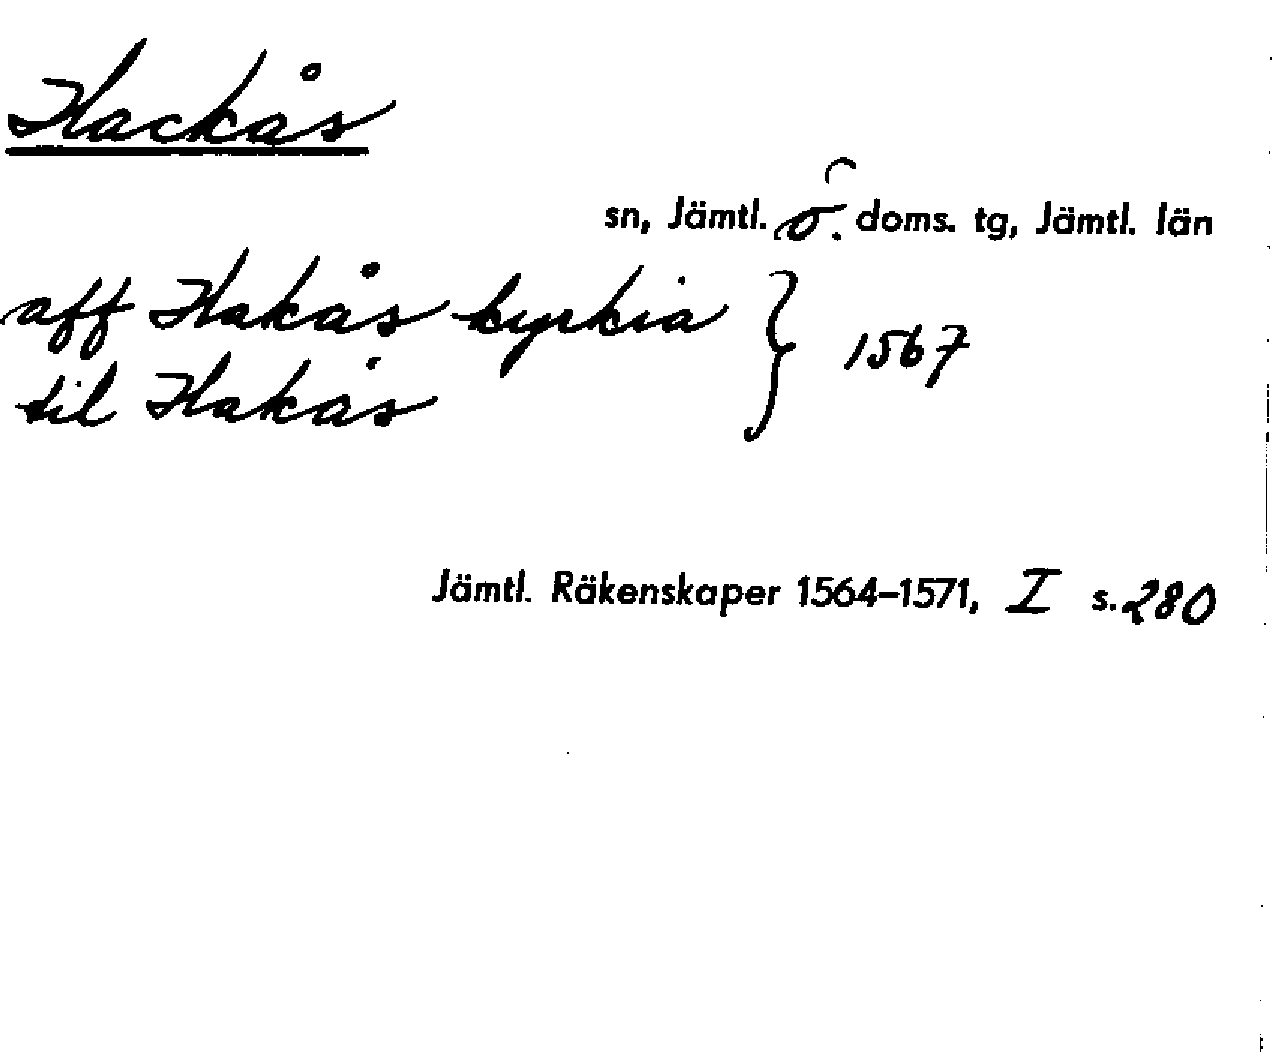 Hackås
sn, Jämtl. ö. doms. tg, Jämtl. län
aff Hakås kyrkia } 1567
til Hakås
Jämtl. Räkenskaper 1564–1571, I s. 280